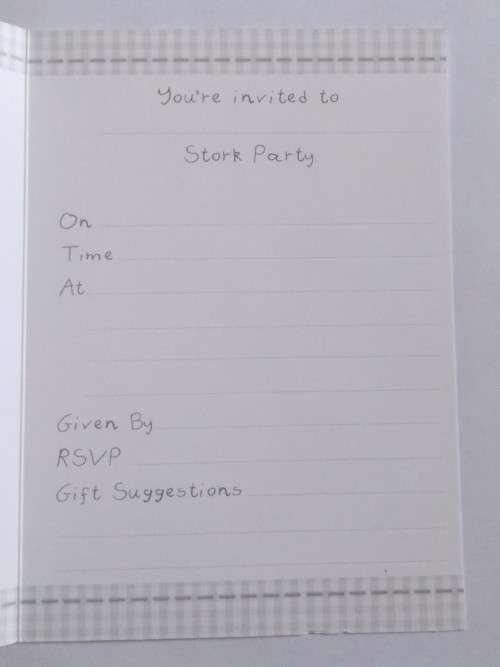 You're invited to
Stork Party
On
Time
At
Given By
RSVP
Gift Suggestions